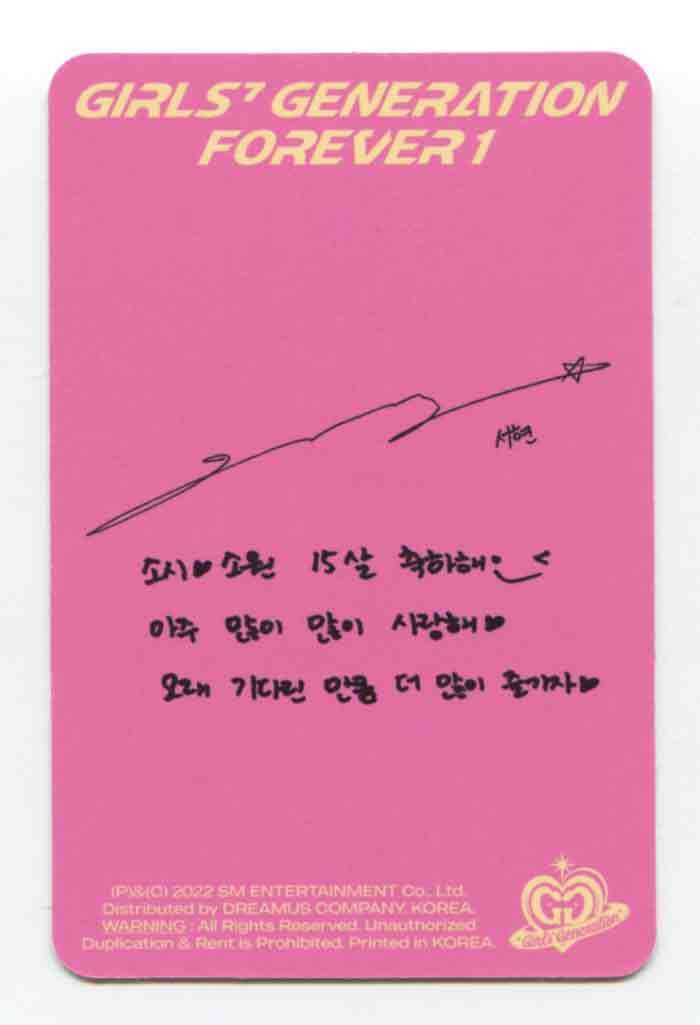 GIRLS' GENERATION
FOREVER 1
서현
소시♥소원 15살 축하해:-)<
아주 많이 많이 사랑해♥
오래 기다린 만큼 더 많이 즐기자♥
(P)&(C) 2022 SM ENTERTAINMENT Co., Ltd.
Distributed by DREAMUS COMPANY. KOREA.
WARNING : All Rights Reserved. Unauthorized
Duplication & Rent is Prohibited. Printed in KOREA.
GG
Girls' Generation